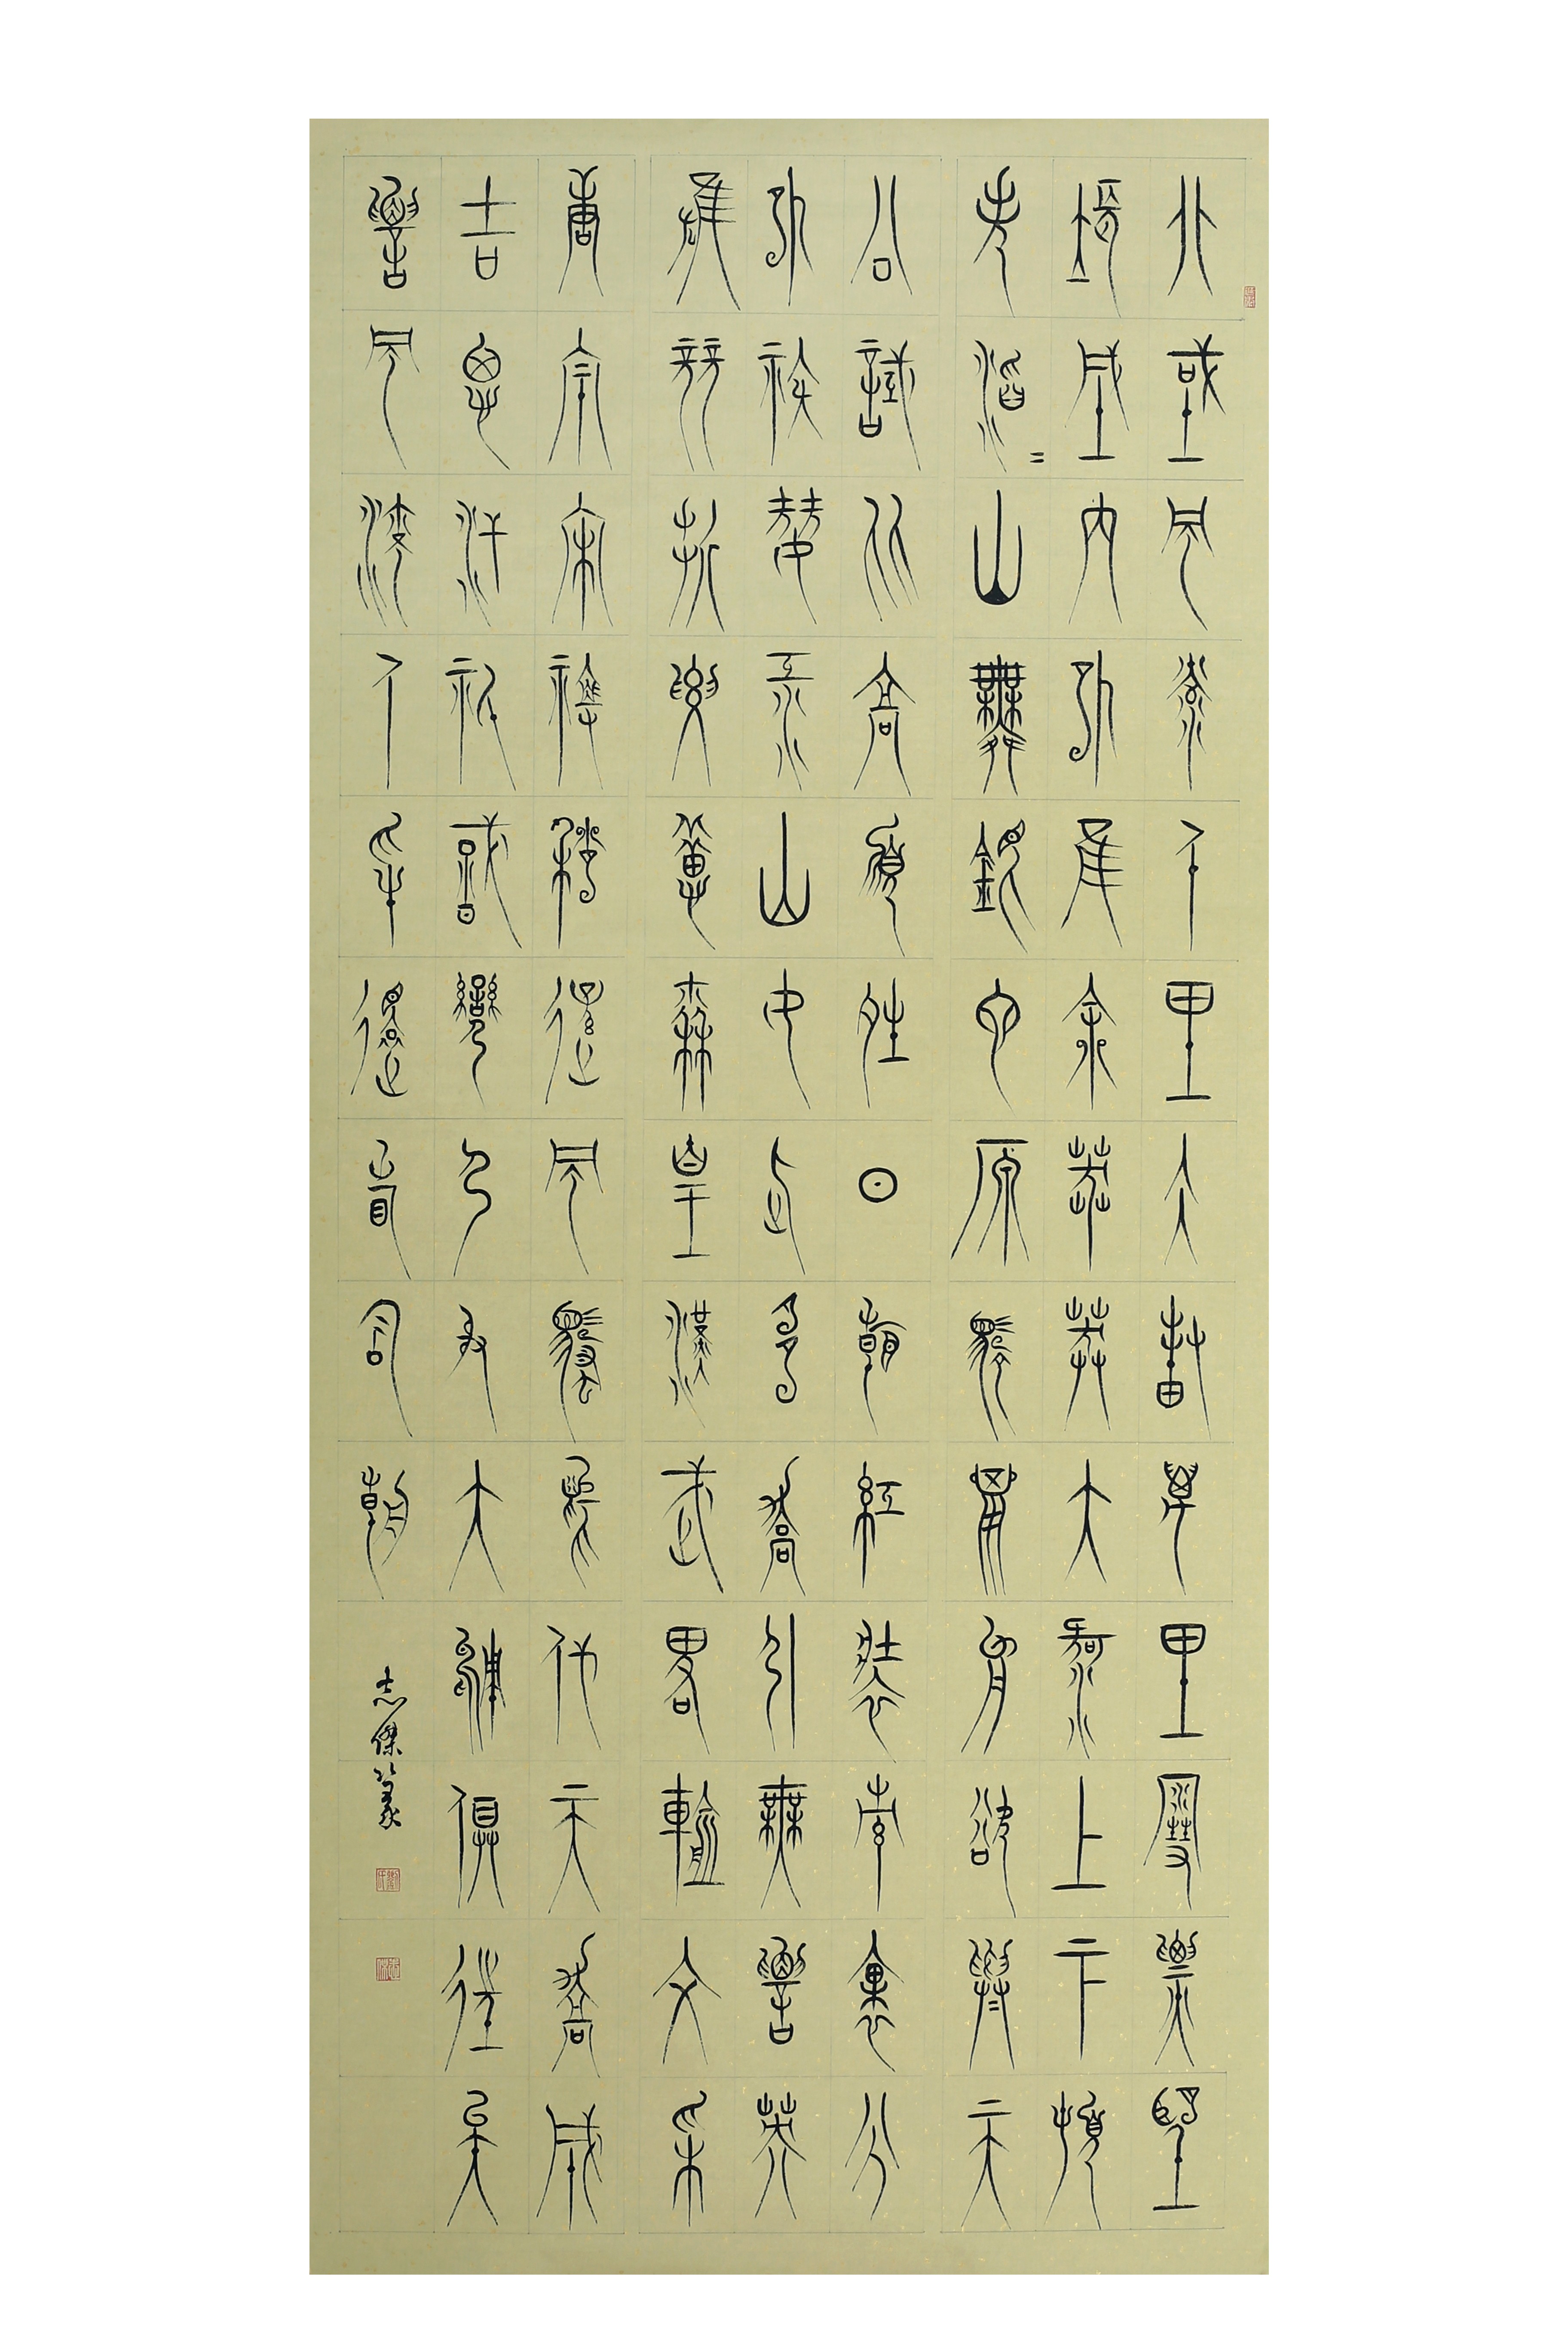 北國風光千里冰封萬里雪飄望
長城内外惟余莽莽大河上下頓
失滔=山舞銀蛇原馳蠟象欲與天
公試比高須晴日看紅裝素裹分
外妖嬈江山如此多嬌引無數英
雄競折腰惜秦皇漢武略輸文采
唐宗宋祖稍遜風騷一代天驕成
吉思汗祇識彎弓射大雕俱往矣
數風流人物還看今朝
志傑篆